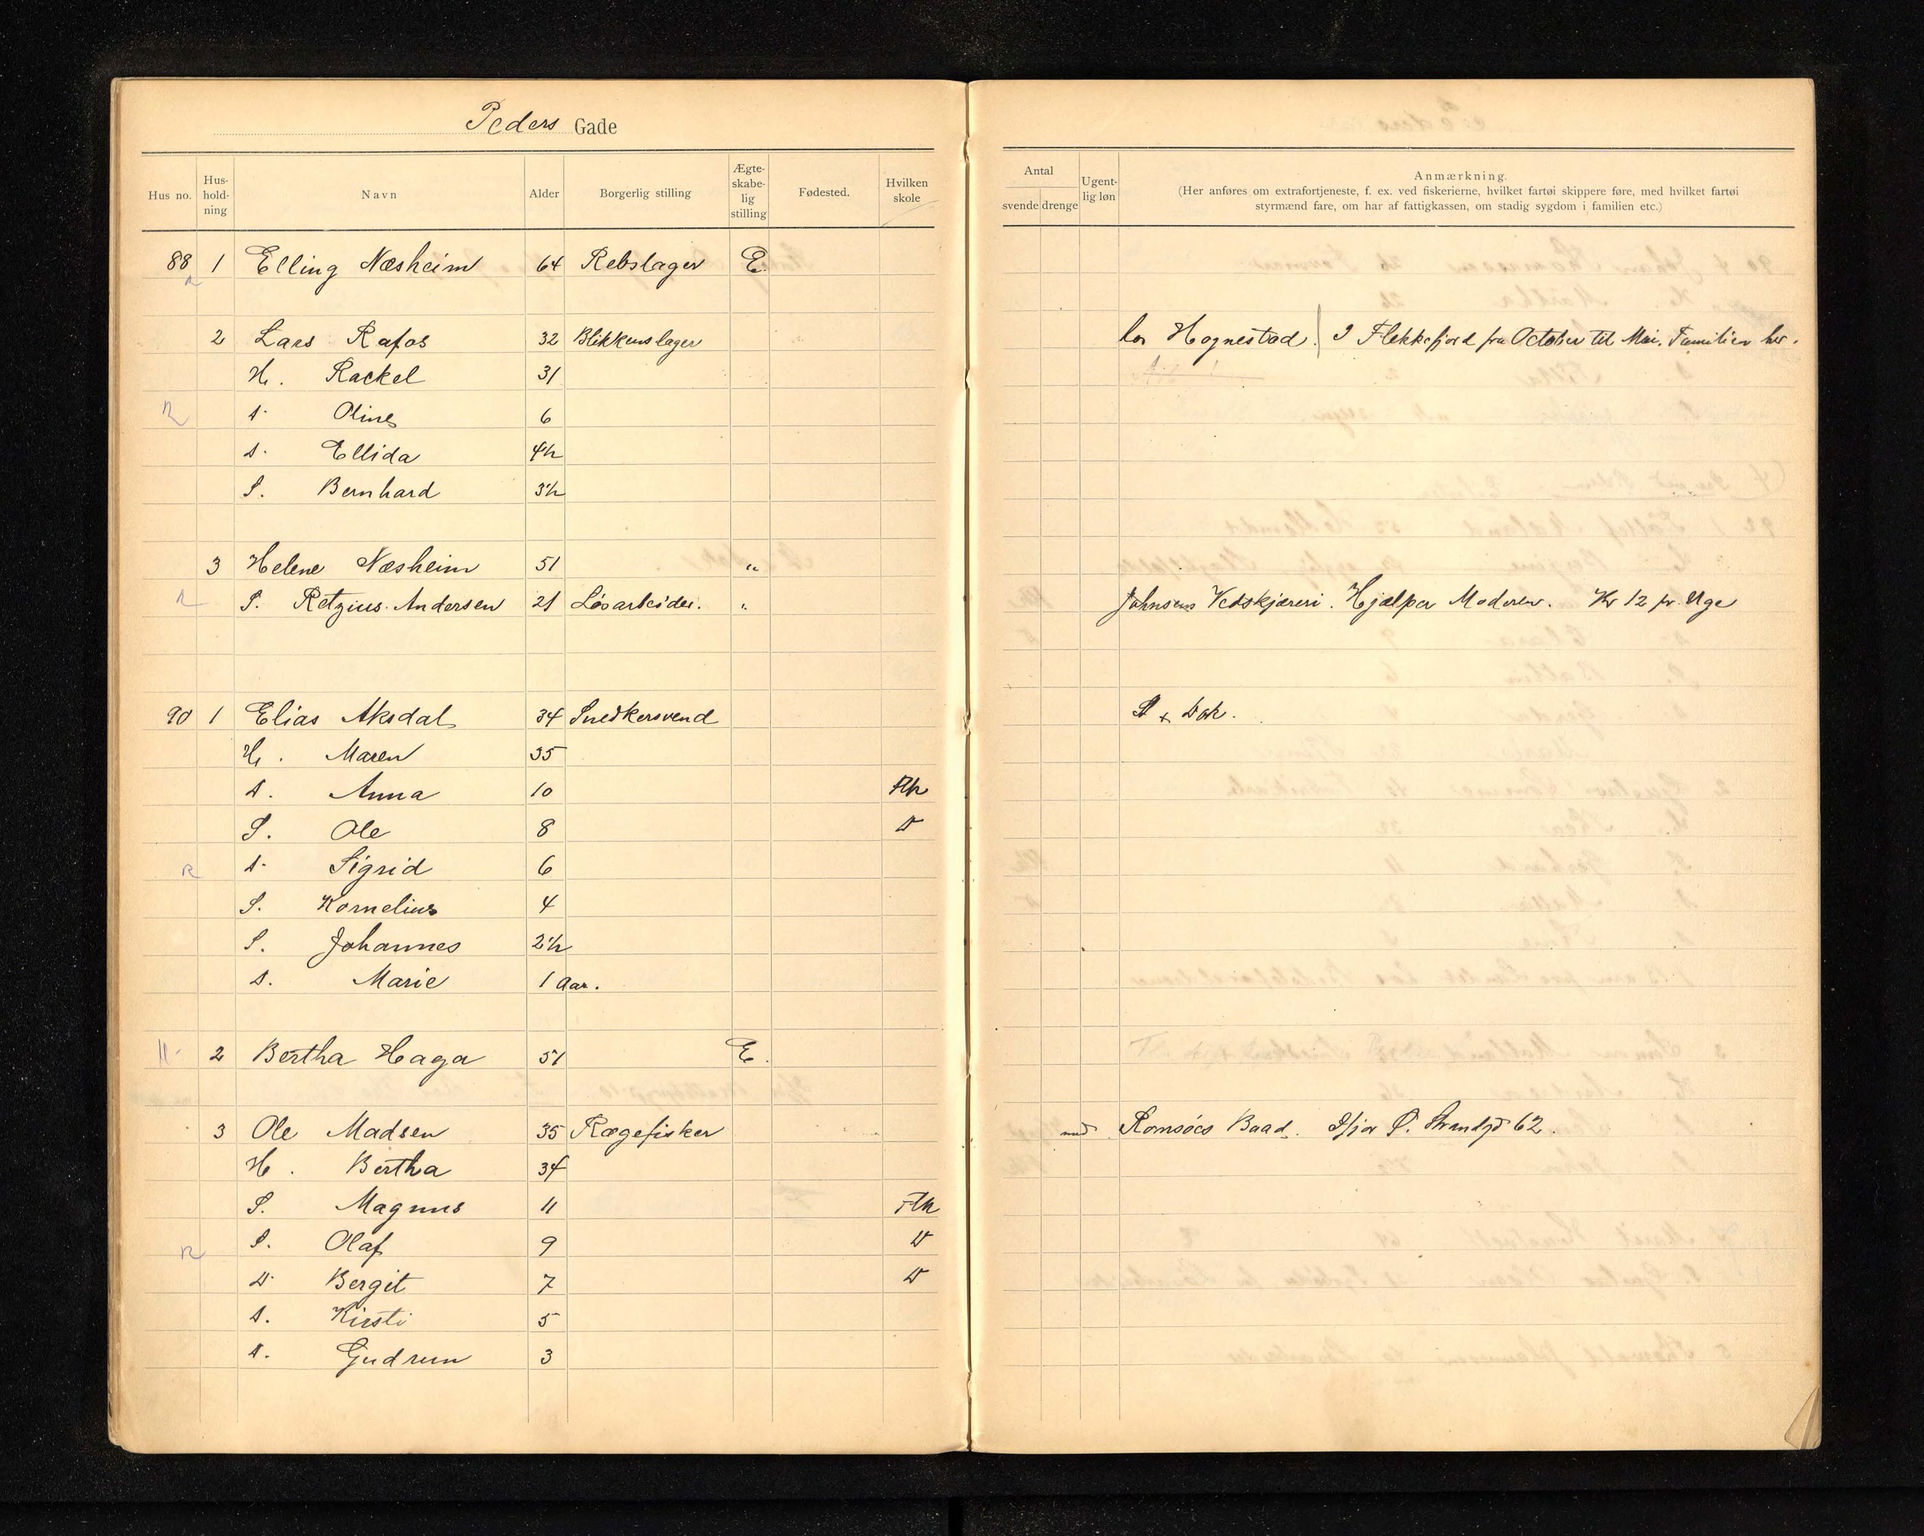 Peders Gade
Hus no. Hus-hold-ning Navn Alder Borgerlig stilling Ægte-skabe-lig stilling Fødested. Hvilken skole
Antal svende drenge Ugent-lig løn Anmærkning.
(Her anføres om extrafortjeneste, f. ex. ved fiskerierne, hvilket fartøi skippere føre, med hvilket fartøi
styrmænd fare, om har af fattigkassen, om stadig sygdom i familien etc.)
88 1 Elling Næsheim 64 Rebslager E.
2 Lars Rafos 32 Blikkenslager hos Hognestad. I Flekkefjord fra October til Mai. Familien her.
H. Rackel 31
D. Oline 6
D. Ellida 4½
S. Bernhard 3½
3 Helene Næsheim 51 "
S. Retzius Andersen 21 Løsarbeider. " Johnsens Vedskjæreri. Hjælper Moderen. Kr 12 pr. Uge
90 1 Elias Aksdal 34 Snedkersvend St & Dok.
H. Maren 35
D. Anna 10 Flk
S. Ole 8 D
D. Sigrid 6
S. Kornelius 4
S. Johannes 2½
D. Marie 1 Aar.
2 Bertha Haga 51 E.
3 Ole Madsen 35 Rægefisker med Romsöes Baad. Ø. Strandgd 62.
H. Bertha 34
S. Magnus 11 Flk
S. Olaf 9 D
D. Bergit 7 D
D. Kirsti 5
D. Gudrun 3